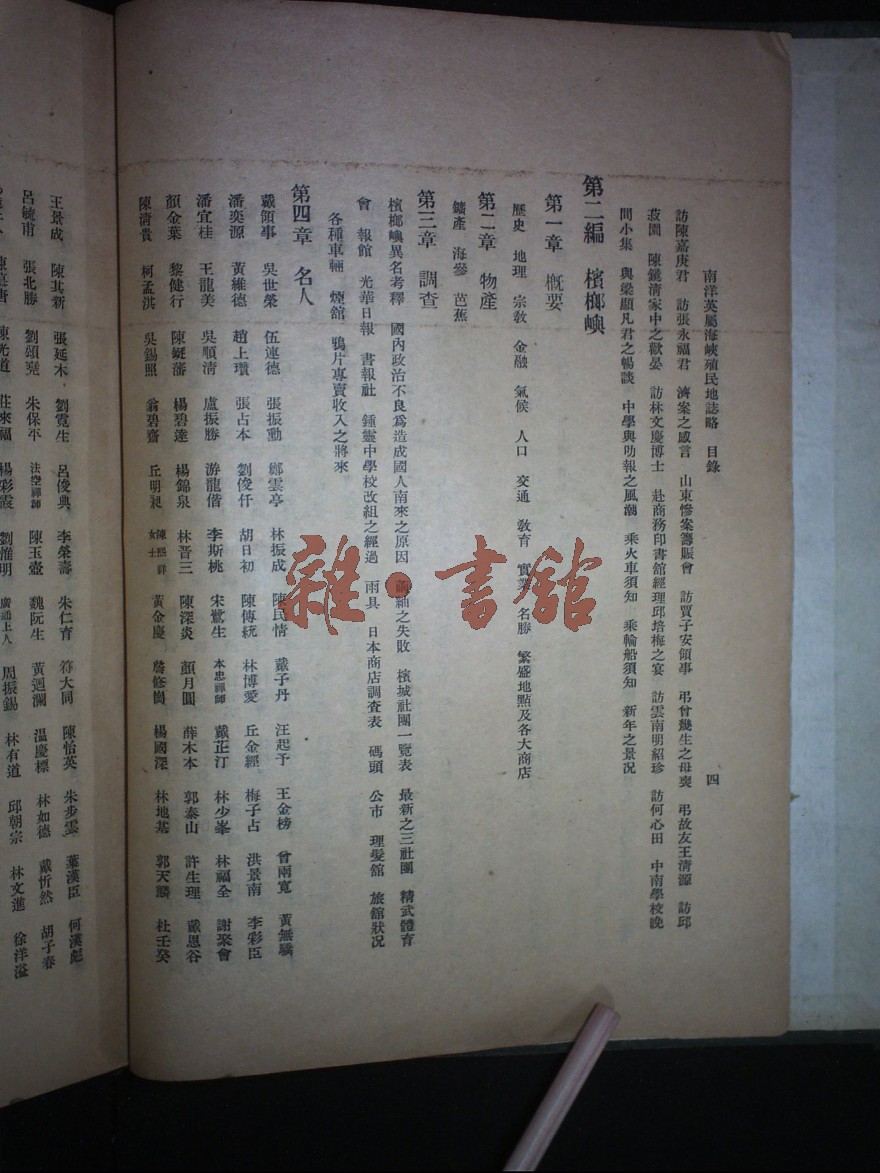 南洋英屬海峽殖民地誌略　目錄　四
訪陳嘉庚君　訪張永福君　濟案之感言　山東慘案籌賑會　訪賈子安領事　弔曾幾生之母喪　弔故友王清源　訪邱
菽園　陳鏡清家中之歡宴　訪林文慶博士　赴商務印書館經理邱培梅之宴　訪雲南明紹珍　訪何心田　中南學校晚
間小集　與梁顯凡君之暢談　中學與叻報之風潮　乘火車須知　乘輪船須知　新年之景況
第二編　檳榔嶼
第一章　概要
歷史　地理　宗教　金融　氣候　人口　交通　教育　實業　名勝　繁盛地點及各大商店
第二章　物產
鑛產　海參　芭蕉
第三章　調查
檳榔嶼異名考釋　國內政治不良爲造成國人南來之原因　之失敗　檳城社團一覽表　最新之三社團　精武體育
會　報館　光華日報　書報社　鍾靈中學校改組之經過　雨具　日本商店調查表　碼頭　公市　理髮館　旅館狀况
各種車輛　煙館　鴉片專賣收入之將來
第四章　名人
戴領事　吳世榮　伍連德　張振勳　鄭雲亭　林振成　陳民情　戴子丹　汪起予　王金榜　曾兩寬　黃無驕
潘奕源　黃維德　趙上瓚　張占本　劉俊仟　胡日初　陳傳統　林博愛　丘金經　梅子占　洪景南　李彩臣
潘宜桂　王龍美　吳順清　盧振勝　游龍偕　李斯桃　宋鷺生　本忠禪師　戴芷汀　林少峯　林福全　謝聚會
顏金葉　黎健行　陳蜒藩　楊碧達　楊錦泉　林晋三　陳深炎　顏月圓　薛木本　郭泰山　許生理　戴恩谷
陳清貴　柯孟淇　吳錫照　翁碧齋　丘明昶　陳熙祥女士　黃金慶　修崗　楊國深　林地基　郭天麟　杜壬癸
王景成　陳其新　張延木　劉霓生　呂俊典　李榮壽　朱仁育　符大同　陳怡英　朱步雲　葉漢臣　何漢彪
呂毓甫　張北勝　劉頌堯　朱保平　法空禪師　陳玉壺　魏阮生　黃迴瀾　溫慶標　林如德　戴忻然　胡子春
陳光道　莊來福　楊彩霞　劉惟明　廣通上人　周振錫　林有道　邱朝宗　林文進　徐洋溢